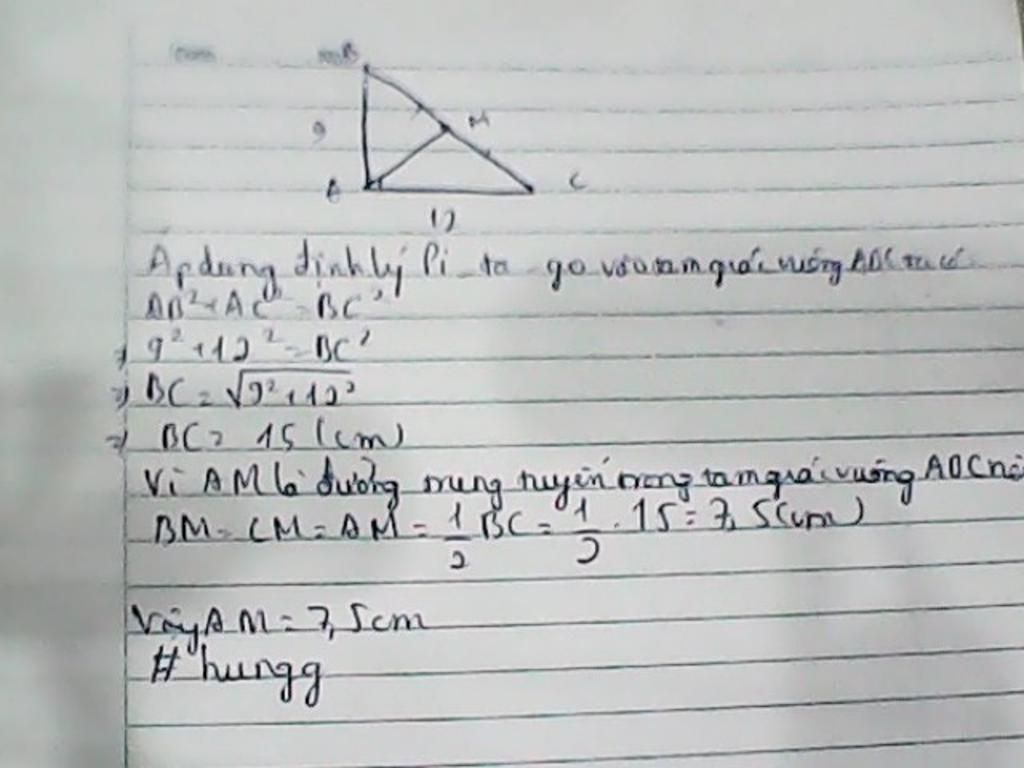 B
M
9
A
C
12
Áp dụng định lý Pi-ta-go vào tam giác vuông ABC ta có
AB² + AC² = BC²
=> 9² + 12² = BC²
=> BC = √9² + 12²
=> BC = 15 (cm)
Vì AM là đường trung tuyến trong tam giác vuông ABC nên
BM = CM = AM = 1/2 BC = 1/2 . 15 = 7,5 (cm)
Vậy AM = 7,5cm
# hungg